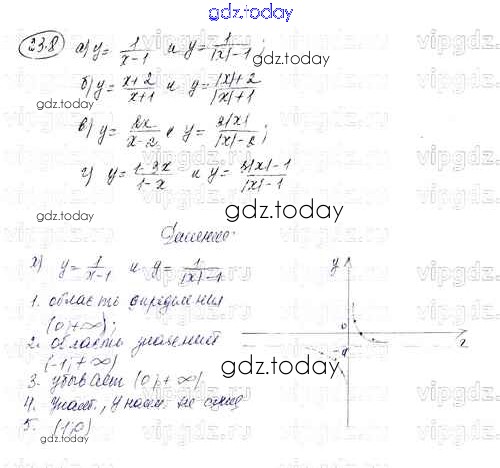 gdz.today
23.8 а) y = 1/(x-1) и y = 1/(|x|-1);
gdz.today
б) y = (x+2)/(x+1) и y = (|x|+2)/(|x|+1)
gdz.today
в) y = 2x/(x-2) и y = 2|x|/(|x|-2);
г) y = (1-3x)/(1-x) и y = (3|x|-1)/(|x|-1)
gdz.today
gdz.today
Решение:
а) y = 1/(x-1) и y = 1/(|x|-1)
1. область определения
(0;+∞);
2. область значений
(-1;+∞)
3. убывает (0;+∞)
4. yнаиб., yнаим. не сущ
5. (1;0)
y
0
gdz.today
gdz.today
gdz.today
vipgdz.ru